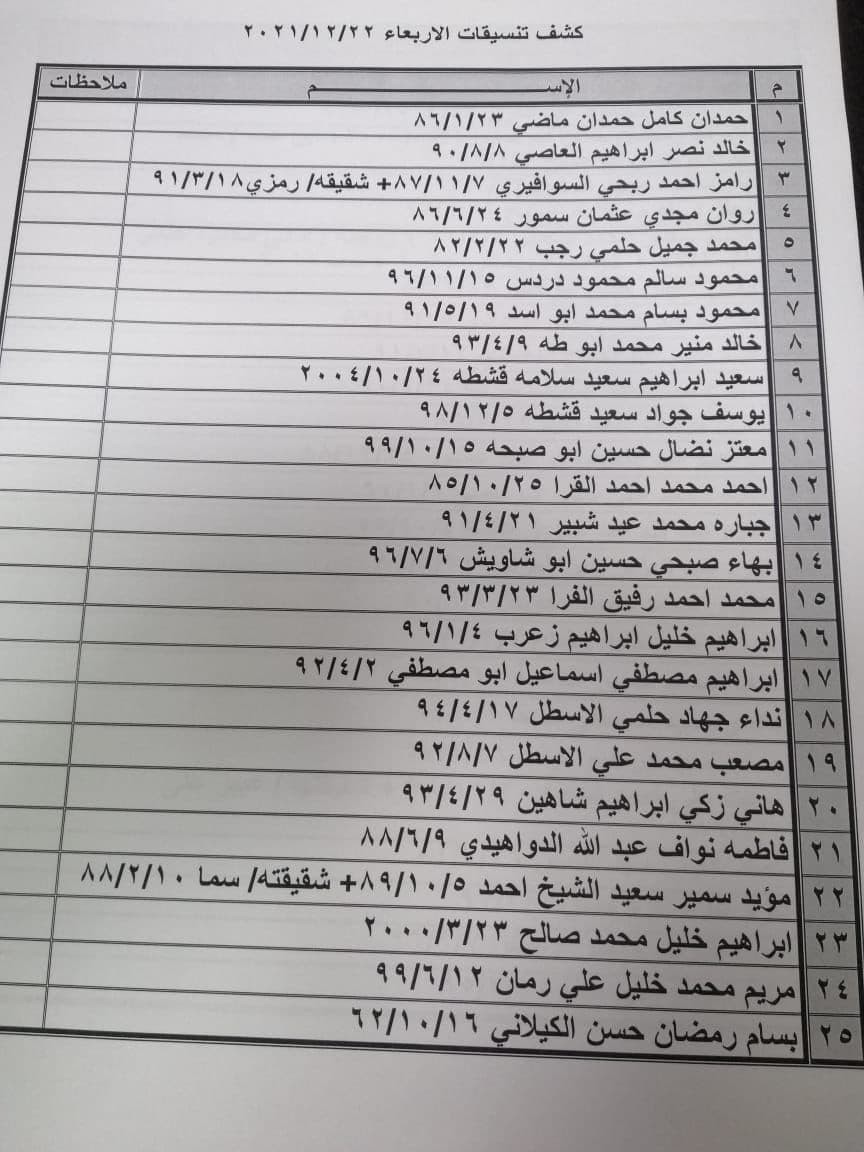 كشف تنسيقات الاربعاء ٢٠٢١/١٢/٢٢
م الإســـــــــــــــم ملاحظات
١ حمدان كامل حمدان ماضي ٨٦/١/٢٣
٢ خالد نصر ابراهيم العاصي ٩٠/٨/٨
٣ رامز احمد ربحي السوافيري ٨٧/١١/٧+ شقيقه/ رمزي٩١/٣/١٨
٤ روان مجدي عثمان سمور ٨٦/٦/٢٤
٥ محمد جميل حلمي رجب ٨٢/٢/٢٢
٦ محمود سالم محمود دردس ٩٦/١١/١٥
٧ محمود بسام محمد ابو اسد ٩١/٥/١٩
٨ خالد منير محمد ابو طه ٩٣/٤/٩
٩ سعيد ابراهيم سعيد سلامه قشطه ٢٠٠٤/١٠/٢٤
١٠ يوسف جواد سعيد قشطه ٩٨/١٢/٥
١١ معتز نضال حسين ابو صبحه ٩٩/١٠/١٥
١٢ احمد محمد احمد القرا ٨٥/١٠/٢٥
١٣ جباره محمد عيد شبير ٩١/٤/٢١
١٤ بهاء صبحي حسين ابو شاويش ٩٦/٧/٦
١٥ محمد احمد رفيق الفرا ٩٣/٣/٢٣
١٦ ابراهيم خليل ابراهيم زعرب ٩٦/١/٤
١٧ ابراهيم مصطفي اسماعيل ابو مصطفي ٩٢/٤/٢
١٨ نداء جهاد حلمي الاسطل ٩٤/٤/١٧
١٩ مصعب محمد علي الاسطل ٩٢/٨/٧
٢٠ هاني زكي ابراهيم شاهين ٩٣/٤/٢٩
٢١ فاطمه نواف عبد الله الدواهيدي ٨٨/٦/٩
٢٢ مؤيد سمير سعيد الشيخ احمد ٨٩/١٠/٥+ شقيقته/ سما ٨٨/٢/١٠
٢٣ ابراهيم خليل محمد صالح ٢٠٠٠/٣/٢٣
٢٤ مريم محمد خليل علي رمان ٩٩/٦/١٢
٢٥ بسام رمضان حسن الكيلاني ٦٢/١٠/١٦